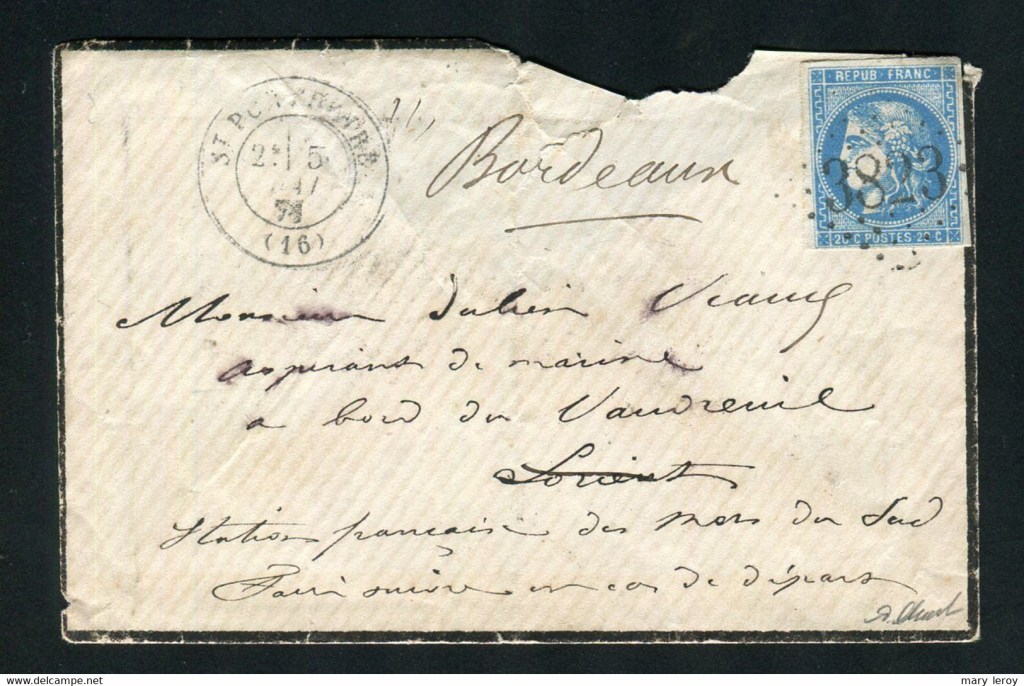 ST PORCHAIRE
2E 5
MAI
71
(16)
Bordeaux
REPUB · FRANC ·
3823
20 C POSTES 20 C
Monsieur Julien Viaud
aspirant de marine
a bord du Vaudreuil
Lorient
Station française des mers du Sud
Faire suivre en cas de départ
mary leroy